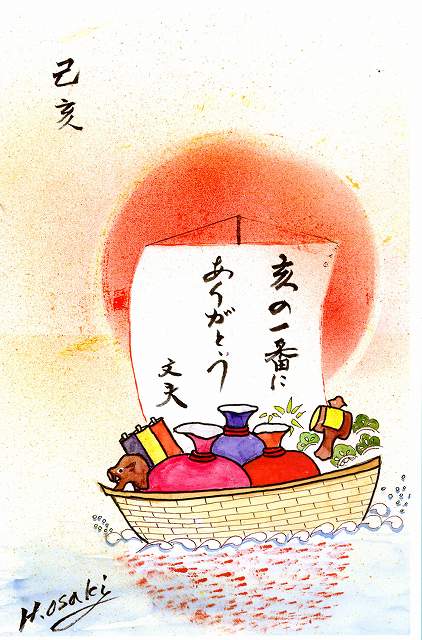 己亥
亥の一番に
ありがとう
文夫
H.osaki